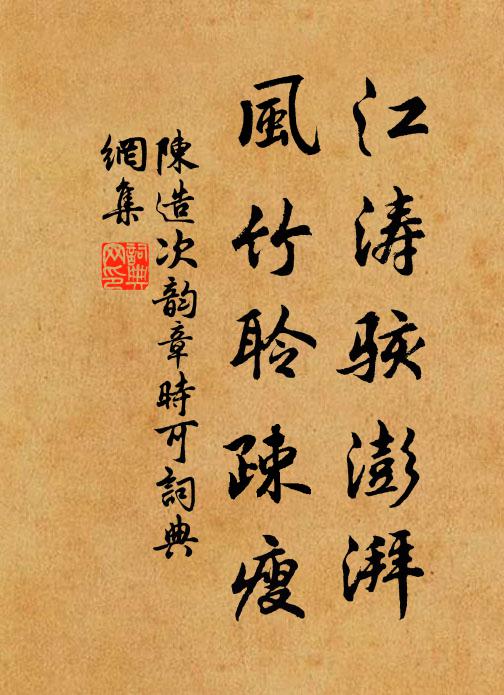 江涛骇澎湃
風竹聆疎瘦
陳造次韵章時可詞典
網集
詞典網印